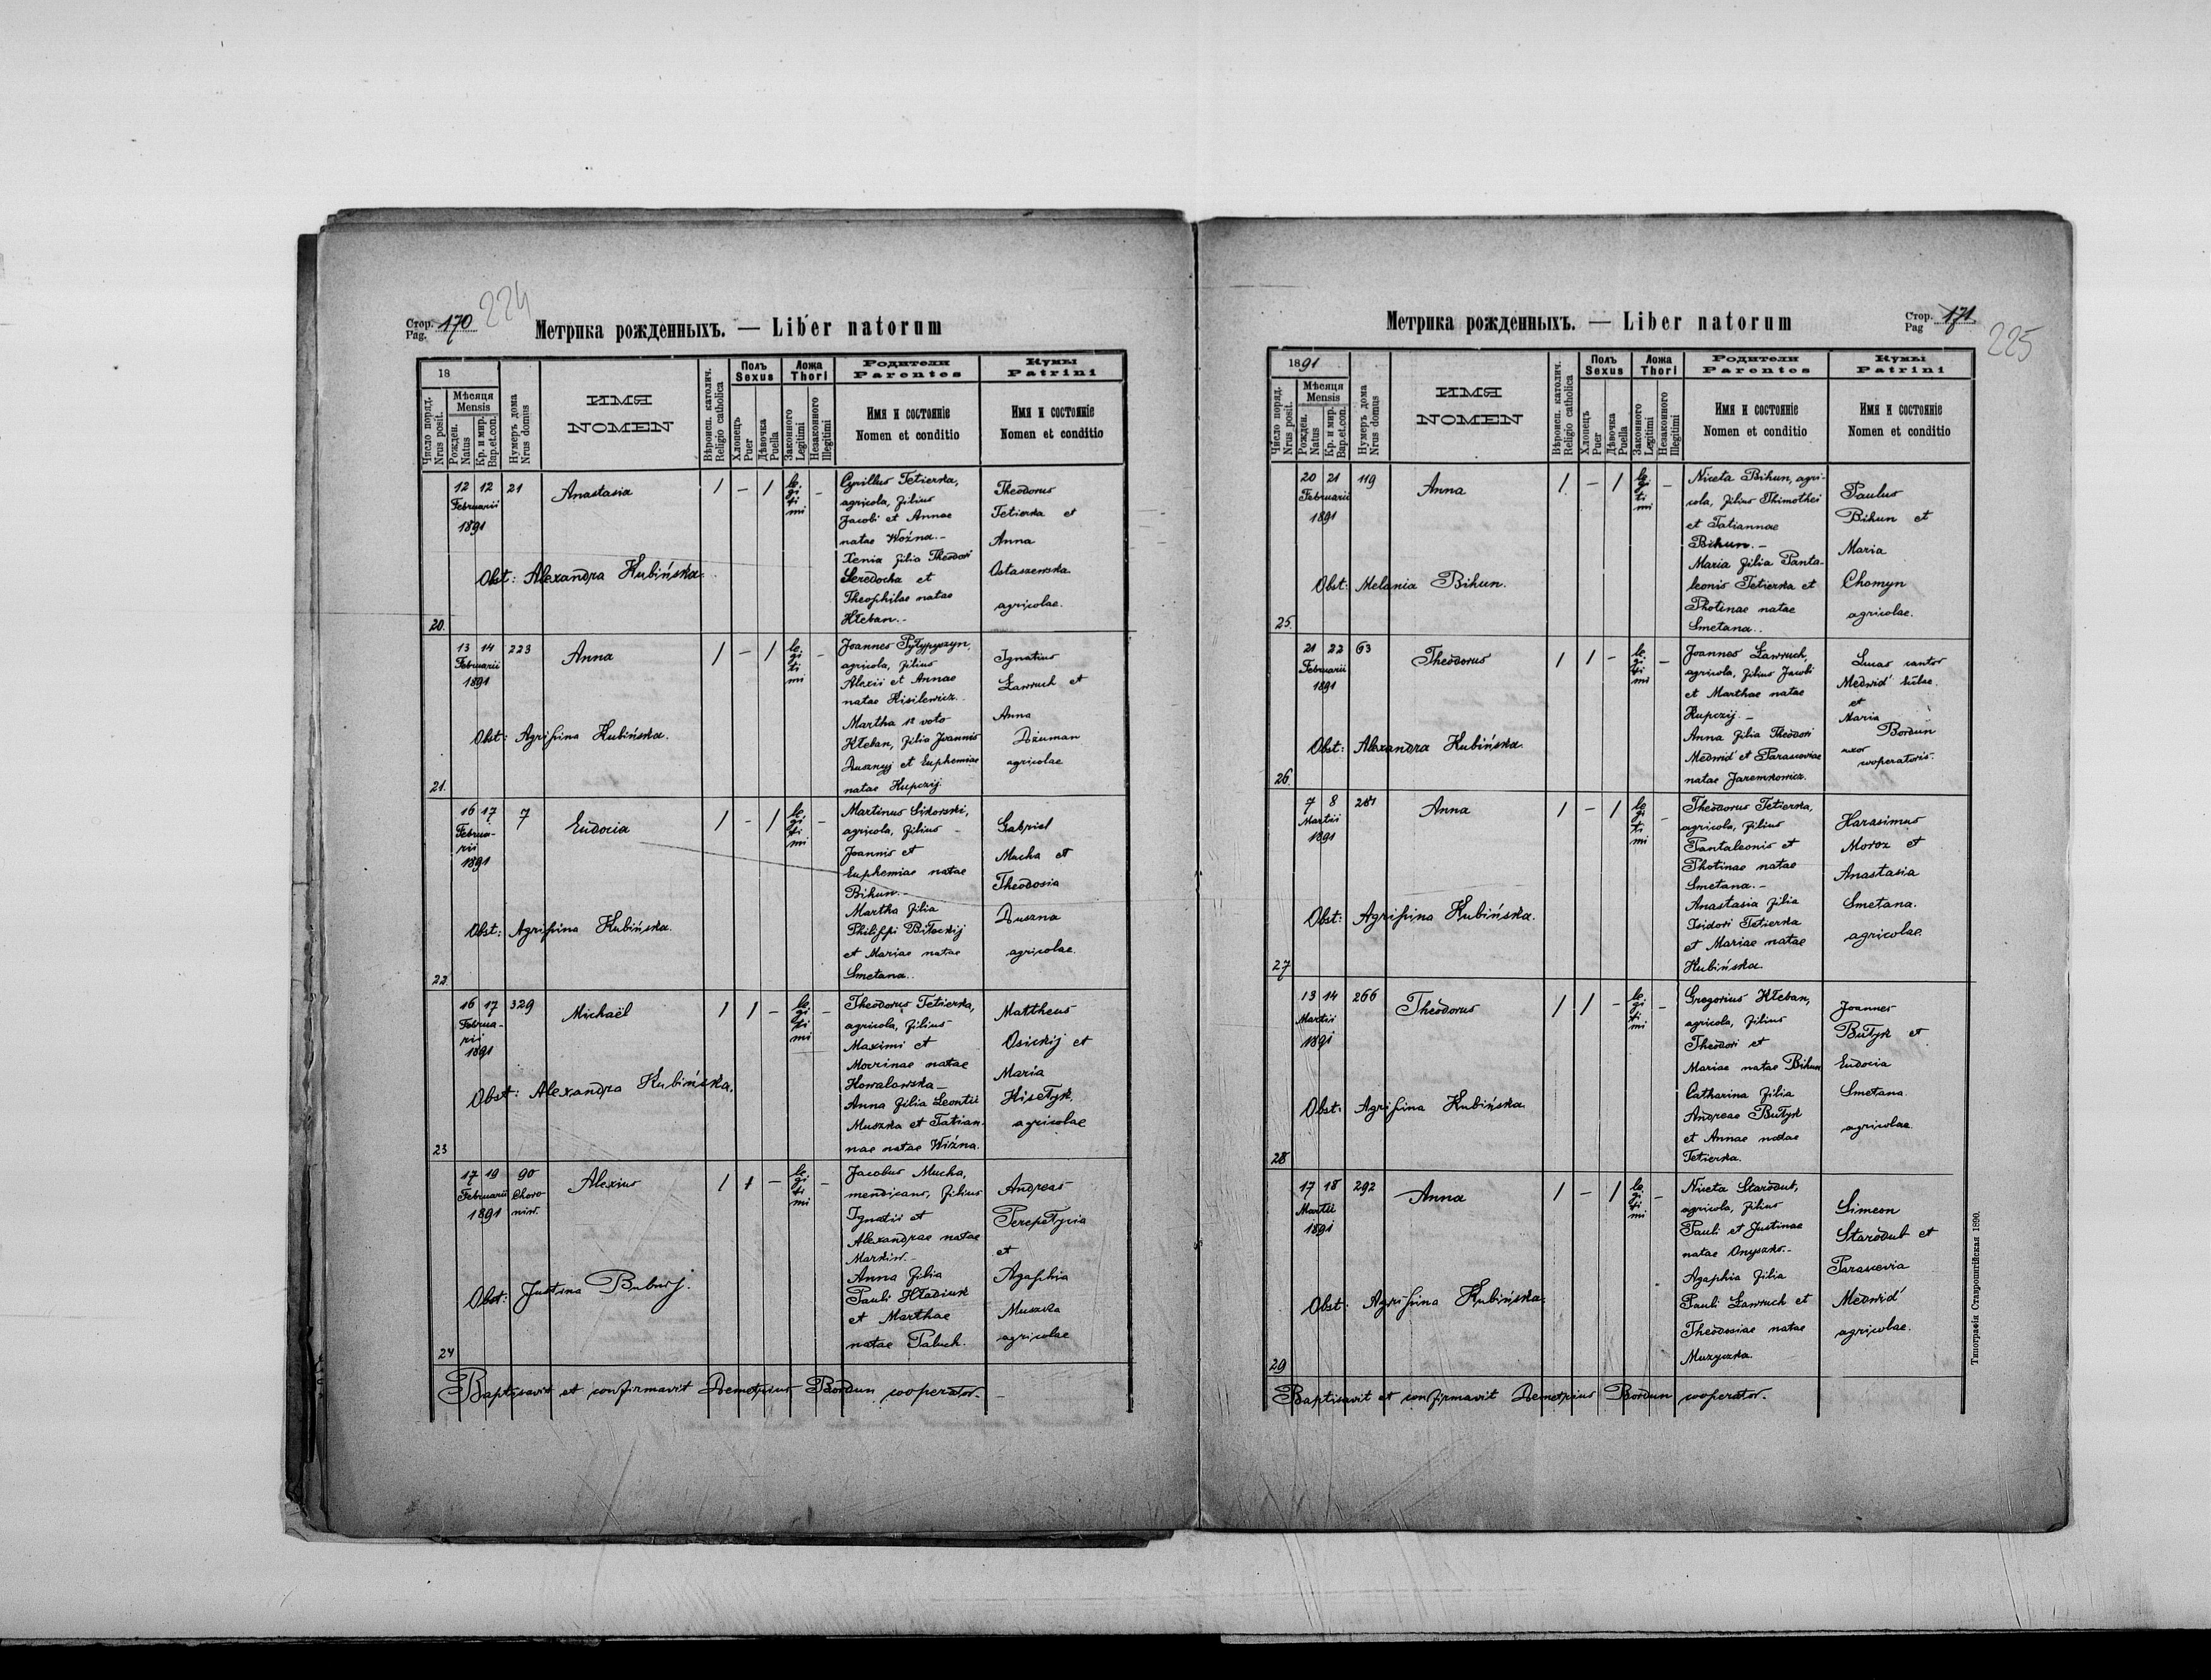 Стор. Pag. 170
224
Метрика рожденныхъ. — Liber natorum
18
Число поряд. Nrus posit.
Мѣсяця Mensis
Рожден. Natus
Кр. и мир. Bap.et.con.
Нумеръ дома Nrus domus
ИМЯ NOMEN
Вѣроисп. католич. Religio catholica
Полъ Sexus
Хлопецъ Puer
Дѣвочка Puella
Ложа Thori
Законного Legitimi
Незаконного Illegitimi
Родители Parentes
Имя и состоянiе
Nomen et conditio
Кумы Patrini
Имя и состоянiе
Nomen et conditio
20.
12 12 21
Februarii
1891
Anastasia
/ - / legitimi -
Cyrillus Tetierka,
agricola, filius
Jacobi et Annae
natae Woźna.-
Xenia filia Theodori
Seredocha et
Theophilae natae
Kłeban.-
Theodorus
Tetierka et
Anna
Ostaszewska
agricolae.
Obst: Alexandra Kubińska.
21.
13 14 223
Februarii
1891
Anna
/ - / legitimi -
Joannes Pyłypyszyn,
agricola, filius
Alexii et Annae
natae Kisilewicz.
Martha 1º voto
Kłeban, filia Joannis
Dusznyj et Euphemiae
natae Kupczij.
Ignatius
Ławruch et
Anna
Dżuman
agricolae
Obst: Agrifina Kubińska.
22.
16 17 7
Februa-
rii
1891
Eudocia
/ - / legitimi -
Martinus Sikorski,
agricola, filius
Joannis et
Euphemiae natae
Bihun.-
Martha filia
Philippi Biłeckij
et Mariae natae
Smetana..
Gabriel
Mucha et
Theodosia
Duszna
agricolae.
Obst: Agrifina Kubińska.
23
16 17 329
Februa-
rii
1891
Michaël
/ / - legitimi -
Theodorus Tetierka,
agricola, filius
Maximi et
Mavrinae natae
Kowalewska-
Anna filia Leontii
Muszka et Tatian-
nae natae Wiźna.
Mattheus
Osickij et
Maria
Kisełyk.
agricolae
Obst: Alexandra Kubińska.
24
17 19 90
Februarii Choro-
1891 niw.
Alexius
/ / - legitimi -
Jacobus Mucha,
mendicans, filius
Ignatii et
Alexandrae natae
Markiw.-
Anna filia
Pauli Hładiuk
et Marthae
natae Paluch.
Andreas
Perepełycia
et
Agaphia
Muszka
agricolae
Obst: Justina Bubnij.
Baptisavit et confirmavit Demetrius Bordun cooperator.
Метрика рожденныхъ. — Liber natorum
Стор. Pag 171
225
1891
Число поряд. Nrus posit.
Мѣсяця Mensis
Рожден. Natus
Кр. и мир. Bap.et.con.
Нумеръ дома Nrus domus
ИМЯ NOMEN
Вѣроисп. католич. Religio catholica
Полъ Sexus
Хлопецъ Puer
Дѣвочка Puella
Ложа Thori
Законного Legitimi
Незаконного Illegitimi
Родители Parentes
Имя и состоянiе
Nomen et conditio
Кумы Patrini
Имя и состоянiе
Nomen et conditio
25.
20 21 119
Februarii
1891
Anna
/ - / legitimi -
Niceta Bihun, agri-
cola, filius Thimothei
et Tatiannae
Bihun.-
Maria filia Panta-
leonis Tetierka et
Photinae natae
Smetana..
Paulus
Bihun et
Maria
Chomyn
agricolae.
Obst: Melania Bihun.
26.
21 22 63
Februarii
1891
Theodorus
/ / - legitimi -
Joannes Ławruch,
agricola, filius Jacobi
et Marthae natae
Kupczij.-
Anna filia Theodori
Medwid' et Parasceviae
natae Jaremkowicz.
Lucas cantor
Medwid'
et
Maria
Bordun
uxor
cooperatoris.
Obst: Alexandra Kubińska.
27
7 8 281
Martii
1891
Anna
/ - / legitimi -
Theodorus Tetierka,
agricola, filius
Pantaleonis et
Photinae natae
Smetana.-
Anastasia filia
Isidori Tetierka
et Mariae natae
Kubińska.
Harasimus
Moroz et
Anastasia
Smetana.
agricolae.
Obst: Agrifina Kubińska.
28
13 14 266
Martii
1891
Theodorus
/ / - legitimi -
Gregorius Kłeban,
agricola, filius
Theodori et
Mariae natae Bihun
Catharina filia
Andreae Butyk
et Annae natae
Tetierka.
Joannes
Butyk et
Eudocia
Smetana
agricolae.
Obst: Agrifina Kubińska.
29
17 18 292
Martii
1891
Anna
/ - / legitimi -
Niceta Starodub,
agricola, filius
Pauli et Justinae
natae Onyszko.-
Agaphia filia
Pauli Ławruch et
Theodosiae natae
Muzyczka.
Simeon
Starodub et
Parascevia
Medwid'
agricolae.
Obst: Agrifina Kubińska.
Baptisavit et confirmavit Demetrius Bordun cooperator.
Типографія Ставропигійская 1890.